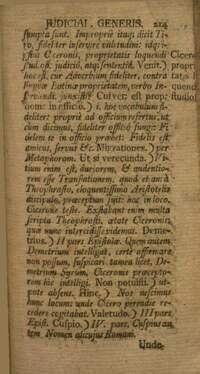 JUDICIAL. GENERIS.
sumpta sunt. Impropriè itaq; dicit Ti-
ro, fideliter inservire valetudini: idq;
Ciceronis, proprietatis loquendi
judicio, sententiâ. Venit.)
hoc est, cur Adverbium fideliter, contra
Latinæ proprietatem, verbo In-
studio
nom: in officio.) i. hoc vocabulum fi-
deliter: propriè ad officium refertur, ut
cùm dicimus, fideliter officio fungi: Fi-
delem se in officio præbet: Fidelis est
amicus, servus &c. Migrationes.) per
Metaphoram. Ut sit verecunda.) Vi-
tium enim est, duriorem, & audentio-
rem esse Translationem, quod et am à
Theophrasto, eloquentissimo Aristotelis
discipulo, præceptum fuit: hoc in loco,
Cicerone teste. Exstabant enim multa
scripta Theophrasti, ætate Ciceronis,
quæ nunc interciderunt. Deme-
trius.) II pars Epistolæ. Quem autem
Demetrium intelligat, certe affirmare
non possum, suspicari tamen licet, De-
metrium Syrum, Ciceronis præcepto-
rem hic intelligi. Non potuisti.) ut-
pote absens. Hinc.) Nos nescimus
hunc locum: unde Cicero perendie re-
cedere cogitabat. Valetudo.) III pars
Epist. Cuspio.) IV. pars, Cuspius au-
tem Nomen alicujus Romani.
Unde
Cicero
propri
studio